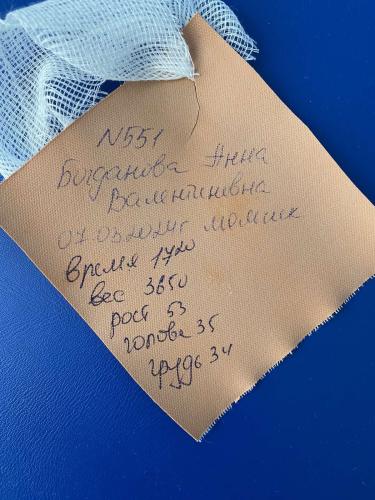 N551
Богданова Анна
Валентиновна
07.03.2024г мальчик
Время 17²⁰
вес 3650
рост 53
голова 35
грудь 34